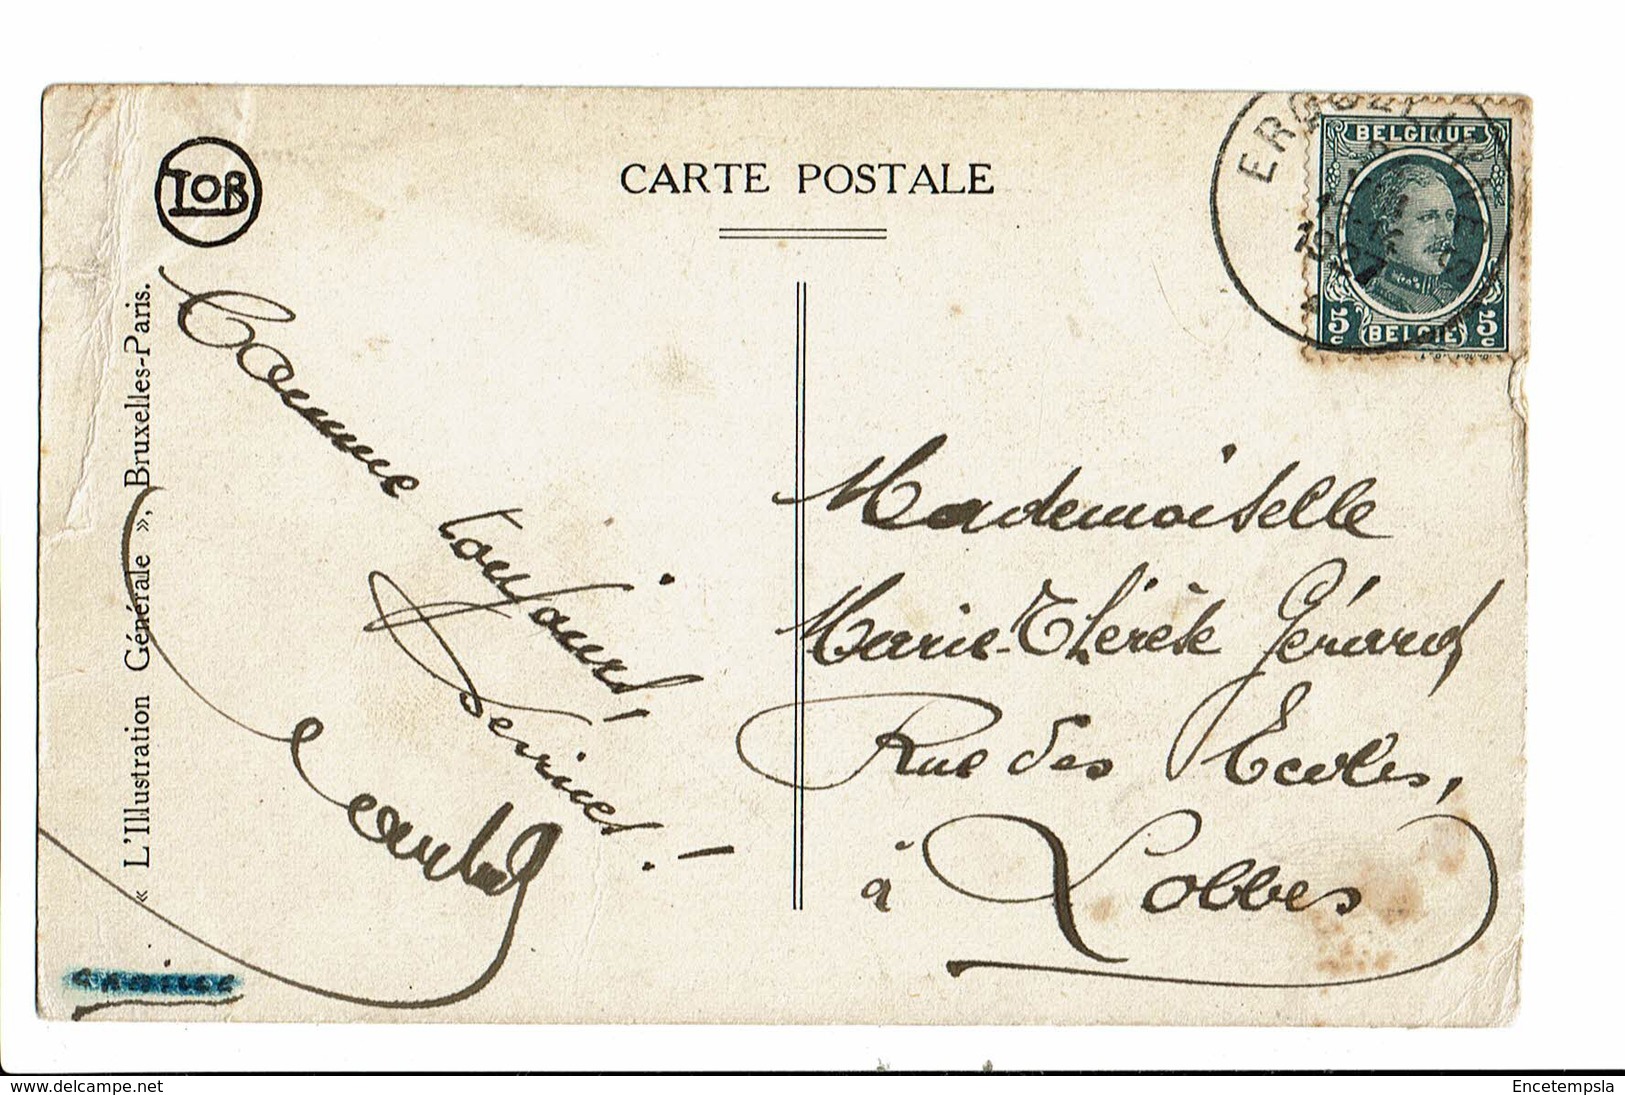 IOB
CARTE POSTALE
BELGIQUE
5c 5c
BELGIË
« L'Illustration Générale », Bruxelles-Paris.
Comme
toujours,
!
Mademoiselle
Marie-Thérèse Gérard,
Rue des Ecoles,
à Lobbes
www.delcampe.net
Encetempsla